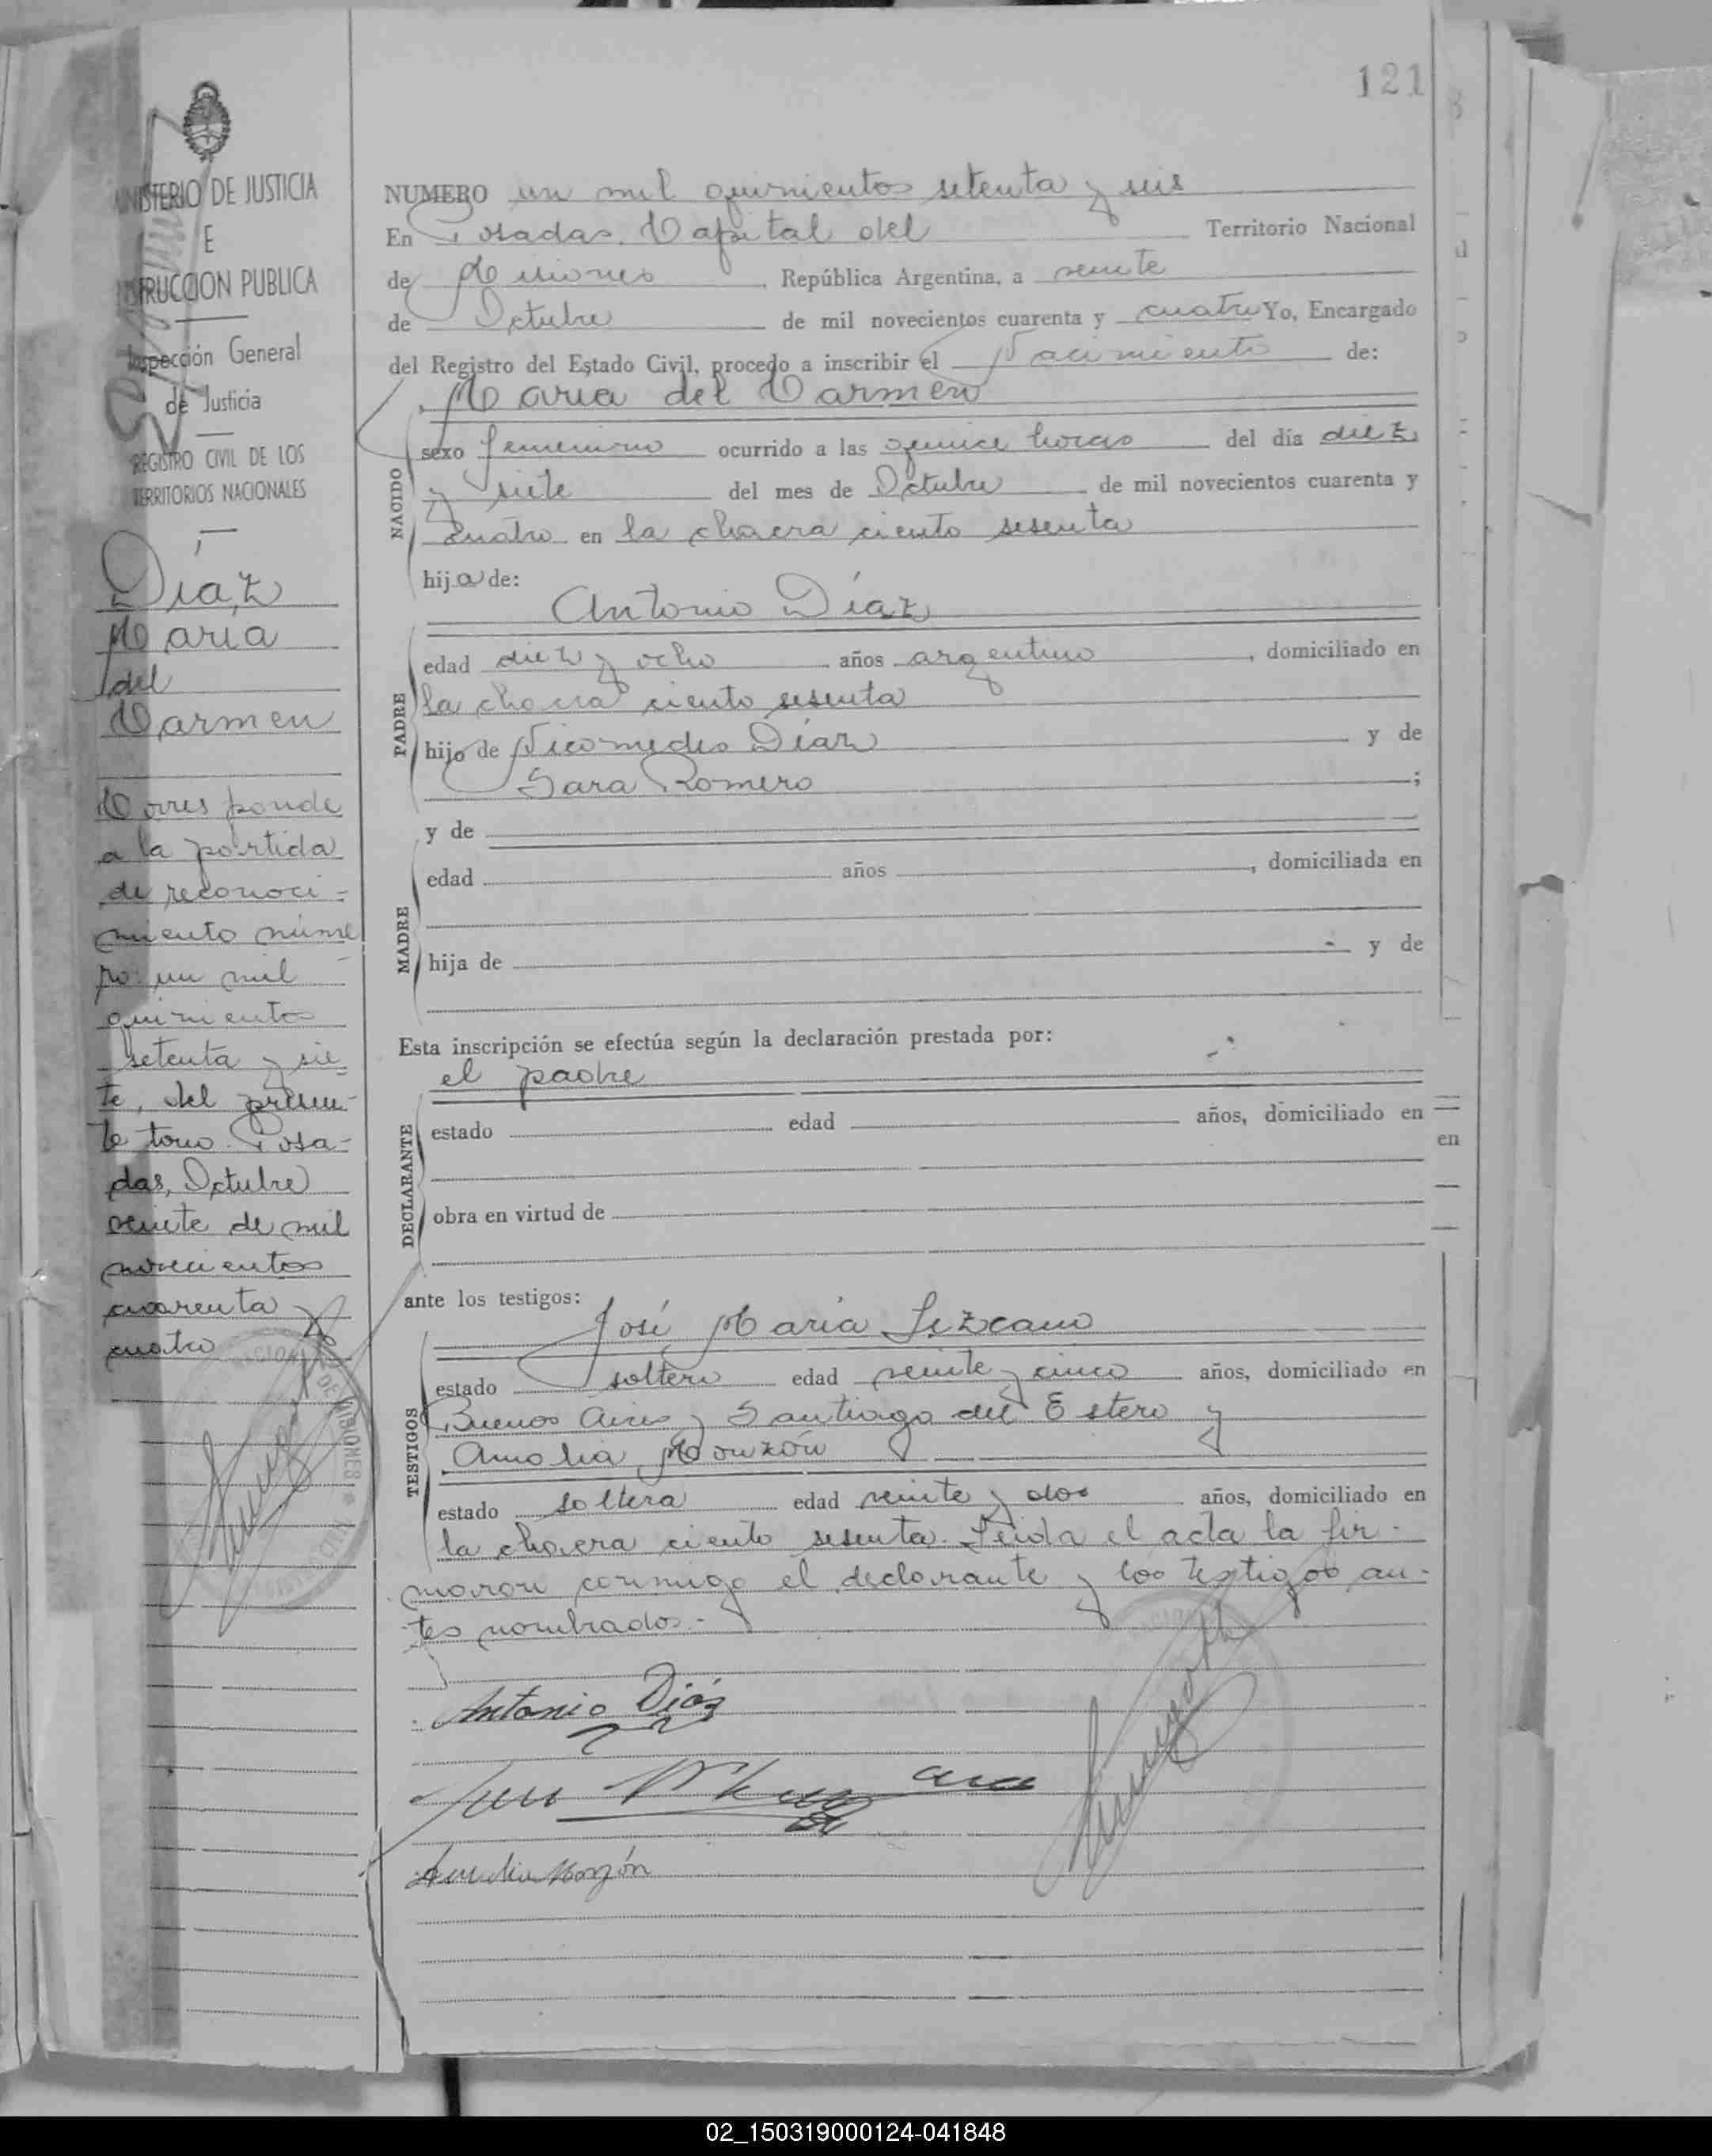 121
MINISTERIO DE JUSTICIA
E
INSTRUCCION PUBLICA
Inspección General
de Justicia
REGISTRO CIVIL DE LOS
TERRITORIOS NACIONALES
Díaz
María
del
Carmen
Corresponde
a la partida
de reconoci-
miento núme
ro: un mil
quinientos
setenta y sie
te, del presen-
te tomo. Posa-
das, Octubre
veinte de mil
novecientos
cuarenta y
cuatro
NUMERO un mil quinientos setenta y seis
En Posadas. Capital del Territorio Nacional
de Misiones, República Argentina, a veinte
de Octubre de mil novecientos cuarenta y cuatro Yo, Encargado
del Registro del Estado Civil, procedo a inscribir el Nacimiento de:
María del Carmen
NACIDO
sexo femenino ocurrido a las quince horas del día diez
y siete del mes de Octubre de mil novecientos cuarenta y
cuatro en la chacra ciento sesenta
hija de:
Antonio Díaz
PADRE
edad diez y ocho años argentino, domiciliado en
la chacra ciento sesenta
hijo de Nicomedes Díaz y de
Sara Romero;
y de
MADRE
edad años, domiciliada en
hija de y de
Esta inscripción se efectúa según la declaración prestada por:
el padre
DECLARANTE
estado edad años, domiciliado en
obra en virtud de
ante los testigos:
José María Lizcano
TESTIGOS
estado soltero edad veinte y cinco años, domiciliado en
Buenos Aires y Santiago del Estero y
Amalia Monzón
estado soltera edad veinte y dos años, domiciliado en
la chacra ciento sesenta. Leída el acta la fir-
maron conmigo el declarante y los testigos an-
tes nombrados.-
Antonio Díaz
Amalia Monzón
en
02_150319000124-041848